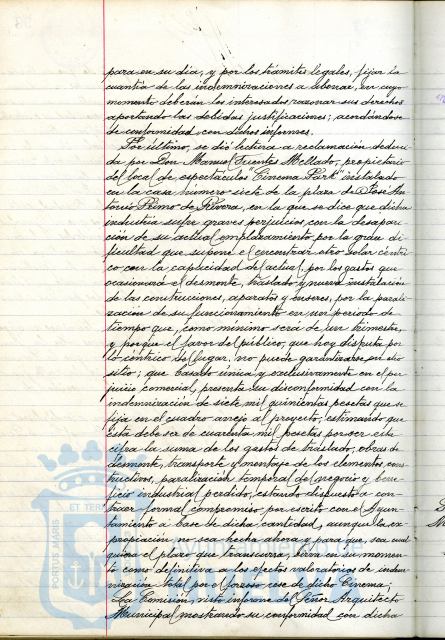 para en su dia, y por los trámites legales, fijar la
cuantia de las indemnizaciones a abonar, en cuyo
momento deberán los interesados razonar sus derechos
aportando las debidas justificaciones; acordándose
de conformidad con dichos informes.
Por último, se dió lectura a reclamación deduci
da por Don Manuel Fuentes Mellado, propietario
del local de espectáculos "Cinema Park" instalado
en la casa número siete de la plaza de José An
tonio Primo de Rivera, en la que se dice que dicha
industria sufre graves perjuicios con la desapari
ción de su actual emplazamiento por la gran di
ficultad que supone el encontrar otro solar céntri
co con la capacidad del actual, por los gastos que
ocasionará el desmonte, traslado y nueva instalación
de las construcciones, aparatos y enseres, por la parali
zación de su funcionamiento en un periodo de
tiempo que, como mínimo será de un trimestre,
y porque el favor del público, que hoy disfruta por
lo céntrico del lugar, no puede garantizarse en otro
sitio; que basado única y exclusivamente en el per
juicio comercial, presenta su disconformidad con la
indemnización de siete mil quinientas pesetas que se
fija en el cuadro anejo al proyecto, estimando que
ésta debe ser de cuarenta mil pesetas por ser esta
cifra la suma de los gastos de traslado, obras de
desmonte, transporte y montage de los elementos cons
tructivos, paralización temporal del negocio y bene
ficio industrial perdido, estando dispuesto a con
traer formal compromiso por escrito con el Ayun
tamiento a base de dicha cantidad, aunque la ex
propiación no sea hecha ahora y para que, sea cual
quiera el plazo que transcurra, sirva en su momen
to como definitiva a los efectos valoratorios de indem
nización total por el forzoso cese de dicho Cinema;
La Comisión, visto informe del Señor Arquitecto
Municipal mostrando su conformidad con dicha
PORTUS MARIS ET TER